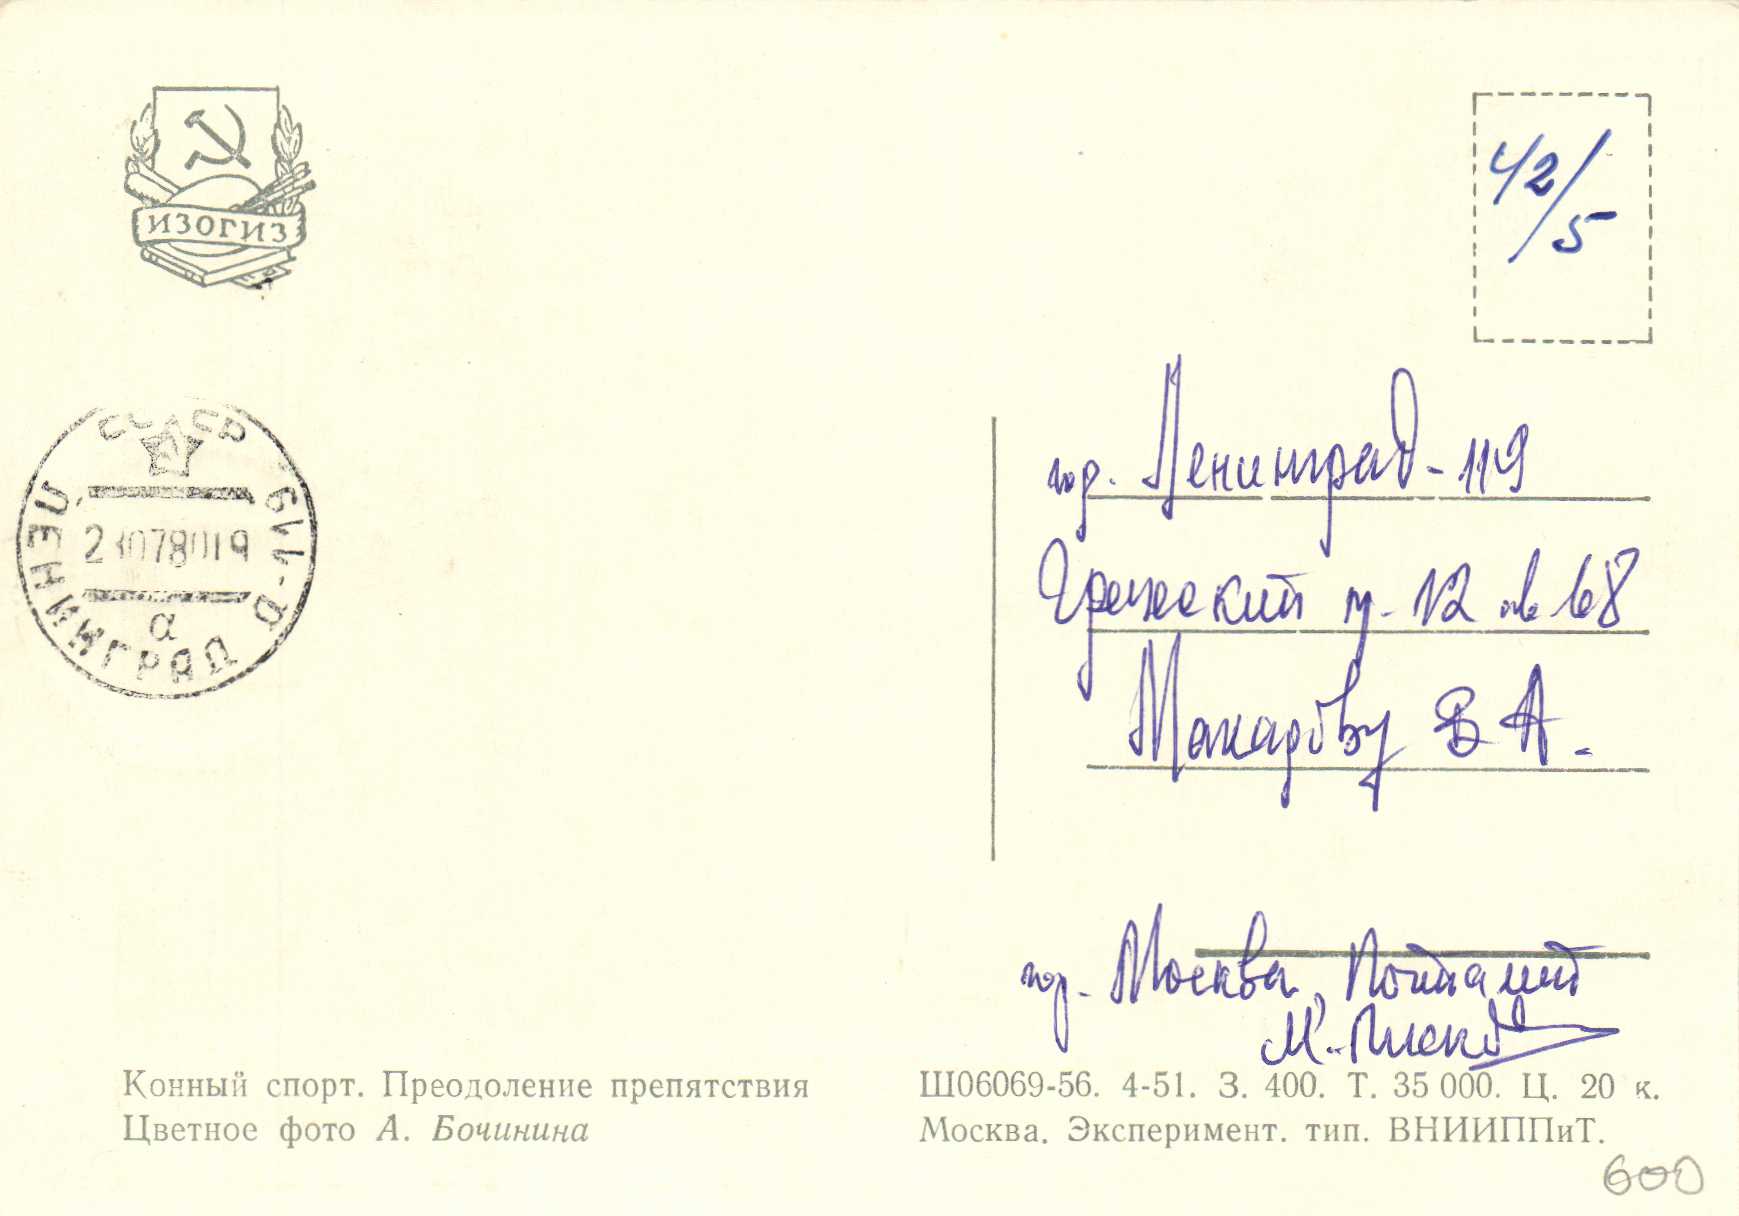 ИЗОГИЗ
42/5
СССР
ЛЕНИНГРАД Д-119
а
гор. Ленинград-119
Греческий п. 12 кв 68
Макарову В А.
гор. Москва, Почтамт
Конный спорт. Преодоление препятствия
Цветное фото А. Бочинина
Ш06069-56. 4-51. З. 400. Т. 35 000. Ц. 20 к.
Москва. Эксперимент. тип. ВНИИППиТ.
600